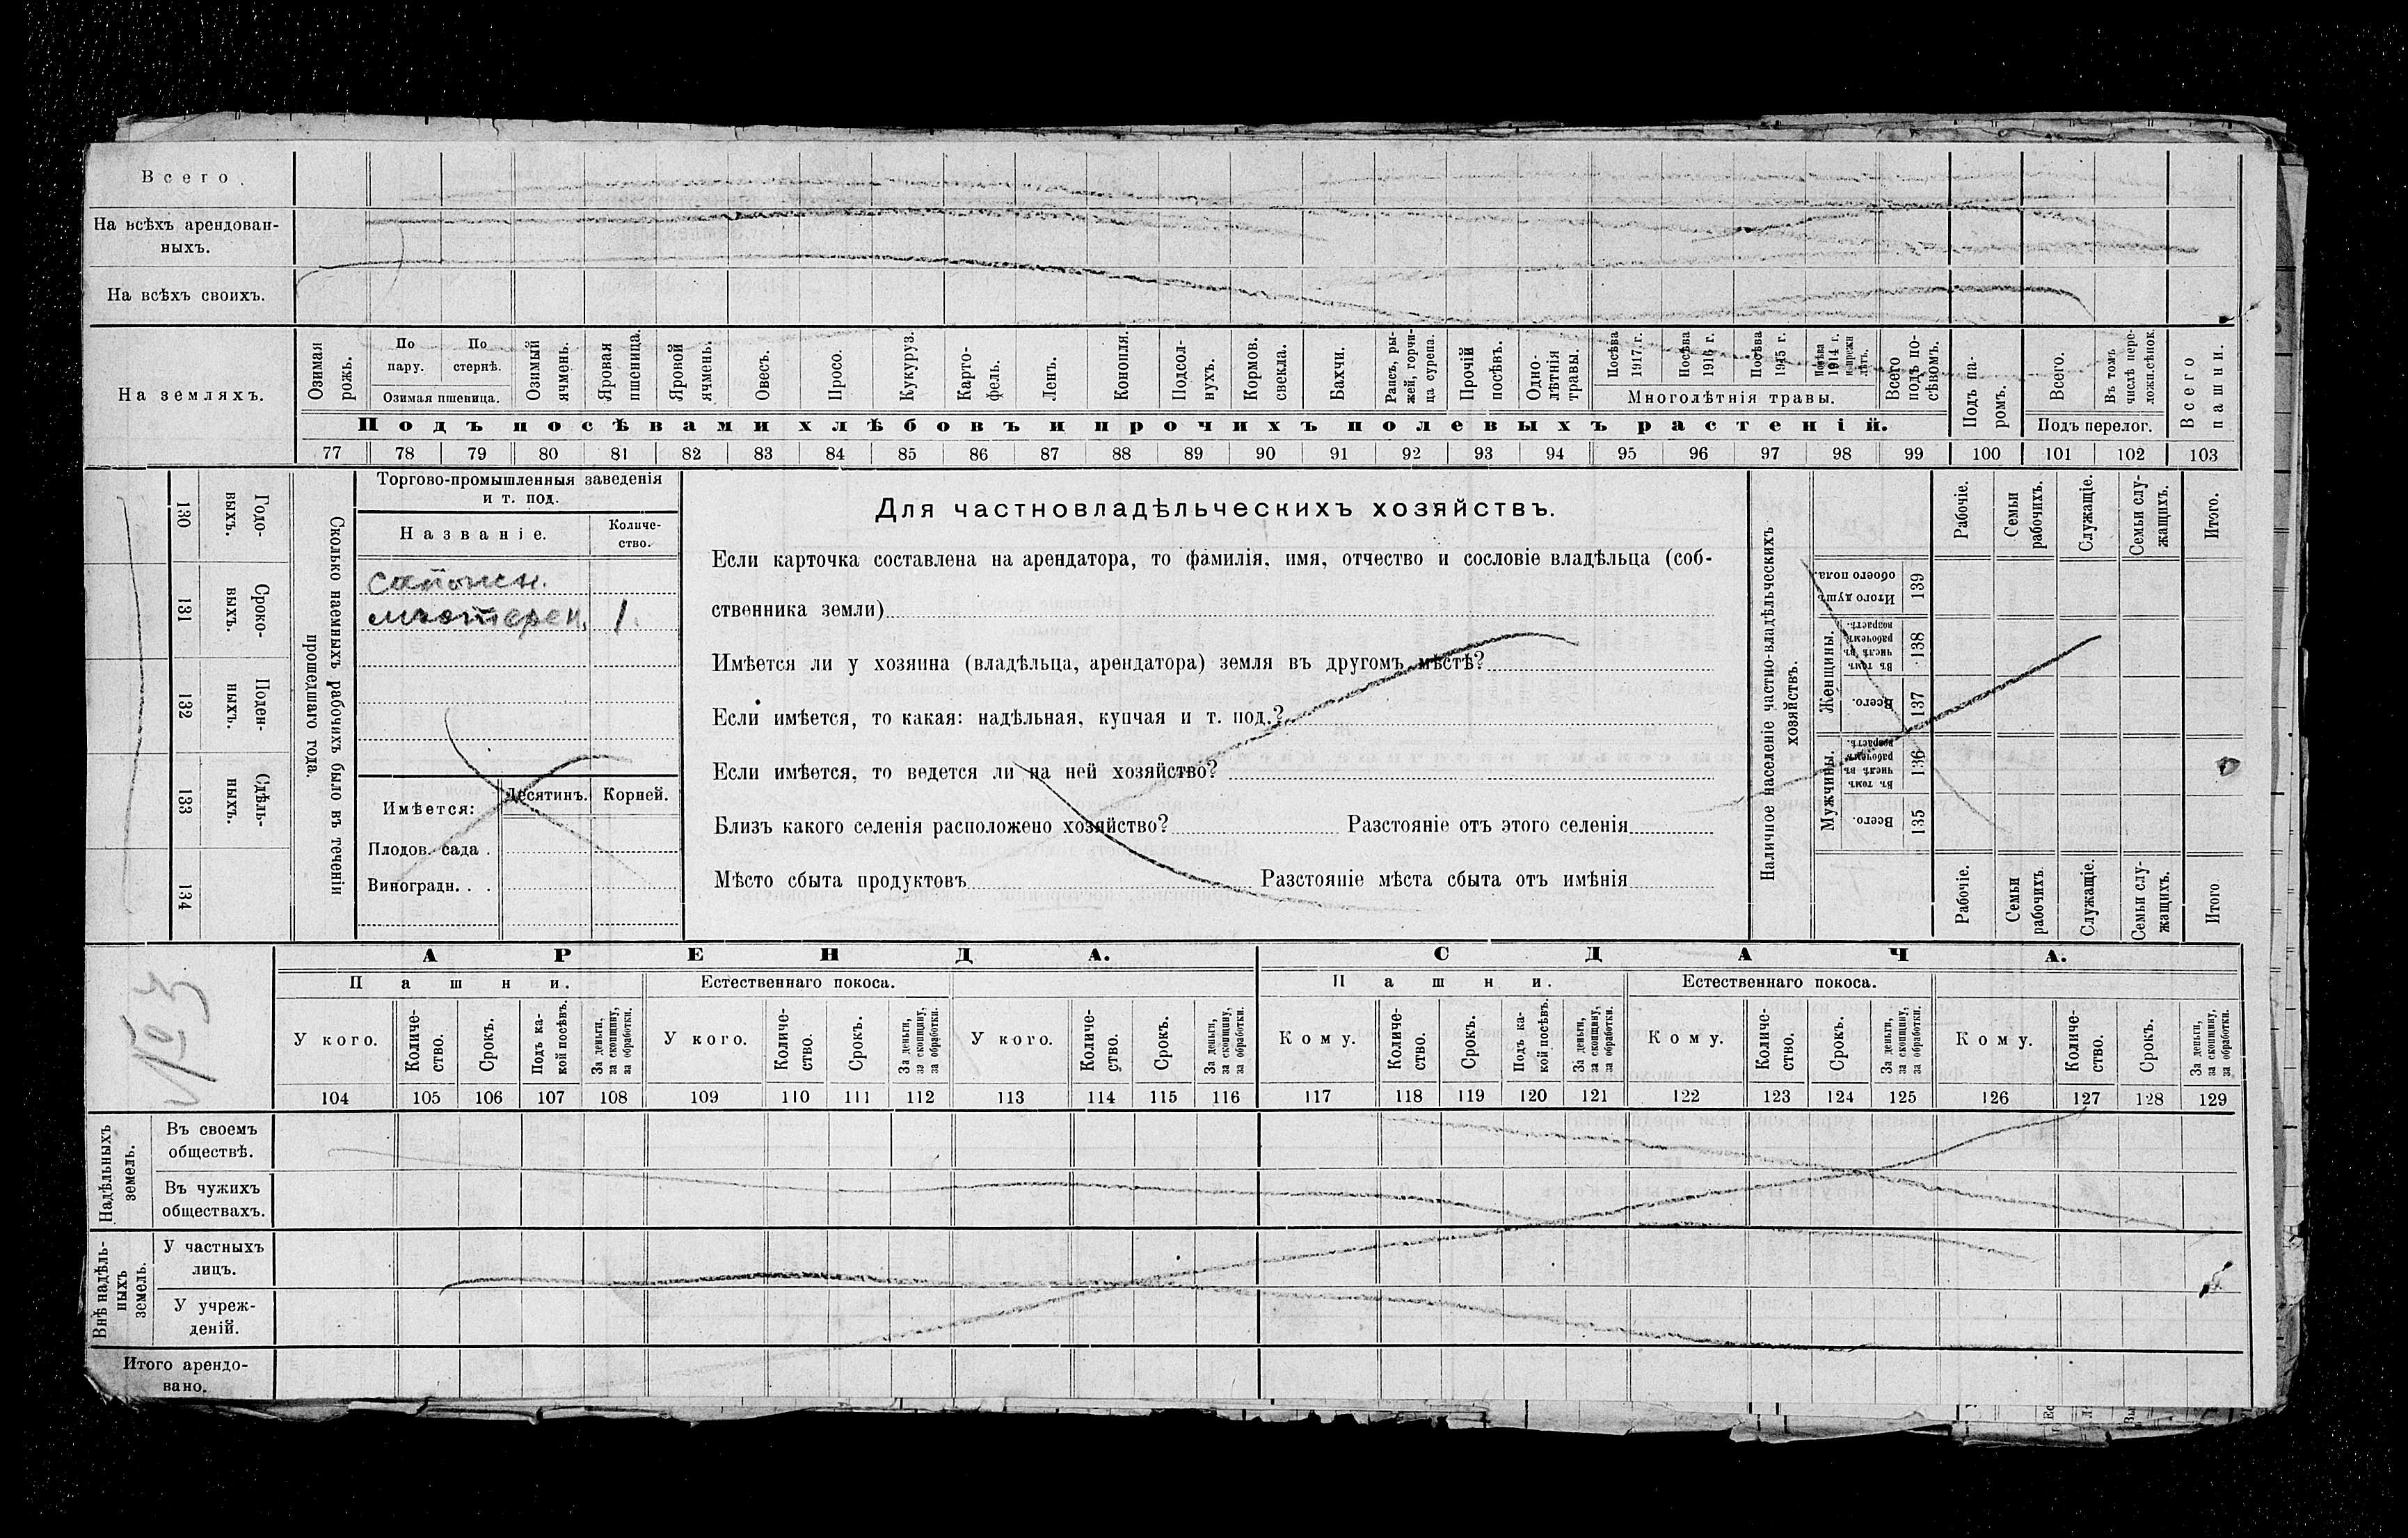 Всего.
На всѣхъ арендован-
ныхъ.
На всѣхъ своихъ.
На земляхъ.
Озимая рожь.
По пару.
По стернѣ.
Озимая пшеница.
Озимый ячмень.
Яровая пшеница.
Яровой ячмень.
Овесъ.
Просо.
Кукуруз.
Карто-
фель.
Ленъ.
Конопля.
Подсол-
нухъ.
Кормов.
свекла.
Бахчи.
Рапсъ, ры-
жей, горчи-
ца сурепа.
Прочій посѣвъ.
Одно-
лѣтнія травы.
Посѣва 1917 г.
Посѣва 1916 г.
Посѣва 1915 г.
Посѣва 1914 г.
Многолѣтнія травы.
Всего подъ по-
сѣвомъ.
Подъ па-
ромъ.
Всего.
Въ томъ числѣ пере-
ложн.сѣнок.
Подъ перелог.
Всего пашни.
Подъ посѣвами хлѣбовъ и прочихъ полевыхъ растеній.
77 78 79 80 81 82 83 84 85 86 87 88 89 90 91 92 93 94 95 96 97 98 99 100 101 102 103
130 131 132 133 134
Годо-
выхъ.
Сроко-
ныхъ.
Поден-
ныхъ.
Сдѣль-
ныхъ.
Сколько наемныхъ рабочихъ было въ теченіи
прошедшаго года.
Торгово-промышленныя заведенія
и т. под.
Названіе.
Количе-
ство.
сапожн.
мастерск. 1.
Имѣется:
Десятинъ.
Корней.
Плодов. сада .
Виноградн. . .
Для частновладѣльческихъ хозяйствъ.
Если карточка составлена на арендатора, то фамилія, имя, отчество и сословіе владѣльца (соб-
ственника земли)
Имѣется ли у хозяина (владѣльца, арендатора) земля въ другомъ мѣстѣ?
Если имѣется, то какая: надѣльная, купчая и т. под.?
Если имѣется, то ведется ли на ней хозяйство?
Близъ какого селенія расположено хозяйство? Разстояніе отъ этого селенія
Мѣсто сбыта продуктовъ Разстояніе мѣста сбыта отъ имѣнія
Наличное населеніе частно-владѣльческихъ
хозяйствъ.
Итого душъ
обоего пола.
139
Женщины.
Въ томъ числѣ въ рабочемъ возрастѣ.
138
Всего.
137
Мужчины.
Въ томъ числѣ въ рабочемъ возрастѣ.
136
Всего.
135
Рабочіе.
Семьи рабочихъ.
Служащіе.
Семьи слу-
жащихъ.
Итого.
Рабочіе.
Семьи рабочихъ.
Служащіе.
Семьи слу-
жащихъ.
Итого
АРЕНДА.
СДАЧА.
Пашни.
Естественнаго покоса.
Пашни.
Естественнаго покоса.
У кого.
Количе-
ство.
Срокъ.
Подъ ка-
кой посѣвъ.
За деньги,
за скопщину,
за обработки.
У кого.
Количе-
ство.
Срокъ.
За деньги,
за скопщину,
за обработки.
У кого.
Количе-
ство.
Срокъ.
За деньги,
за скопщину,
за обработки.
Кому.
Количе-
ство.
Срокъ.
Подъ ка-
кой посѣвъ.
За деньги,
за скопщину,
за обработки.
Кому.
Количе-
ство.
Срокъ.
За деньги,
за скопщину,
за обработки.
Кому.
Количе-
ство.
Срокъ.
За деньги,
за скопщину,
за обработки.
104 105 106 107 108 109 110 111 112 113 114 115 116 117 118 119 120 121 122 123 124 125 126 127 128 129
Надѣльныхъ
земель.
Въ своемъ
обществѣ.
Въ чужихъ
обществахъ.
Внѣ надѣль-
ныхъ
земель.
У частныхъ
лицъ.
У учреж-
деній.
Итого арендо-
вано.